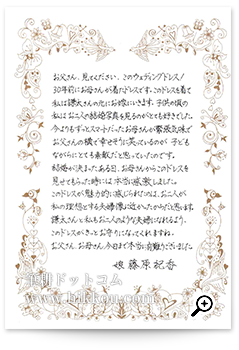 お父さん、見てください、このウェディングドレス!
30年前にお母さんが着たドレスです。このドレスを着て
私は鎌太さんの元にお嫁にいきます。子供の頃の
私はお二人の結婚写真を見るのがとても好きでした。
今よりもずっとスマートだったお母さんが緊張気味で
お父さんの横で幸せそうに笑っているのが、子ども
ながらにとても素敵だと思っていたのです。
結婚が決まったある日、お母さんからこのドレスを
見せてもらった時には本当に感激しました。
このドレスが魅力的に感じられたのは、お二人が
私の理想とする夫婦像に近かったからだと思います。
鎌太さんと私もお二人のような夫婦になれるよう、
このドレスがきっとお守りになってくれますね。
お父さん、お母さん、今日まで本当に有難うございました。
娘 藤原紀香
筆耕ドットコム
www.hikkou.com